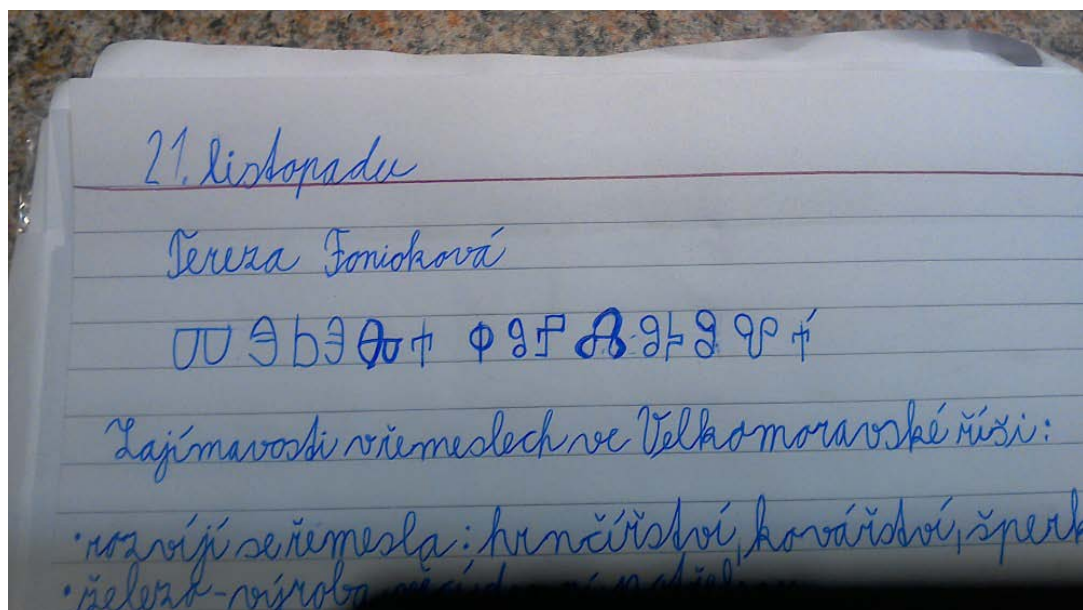 21. listopadu
Tereza Fonioková
ⰕⰅⰓⰅⰈⰀ
Zajímavosti v řemeslech ve Velkomoravské říši:
• rozvíjí se řemesla: hrnčířství, kovářství, šperk
• železo - výroba